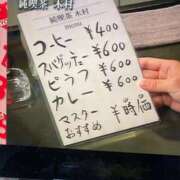 純喫茶 木村
純喫茶 木村
menu
コーヒー ¥400
スパゲッティー ¥600
ピラフ ¥600
カレー ¥600
マスター
おすすめ ¥時価